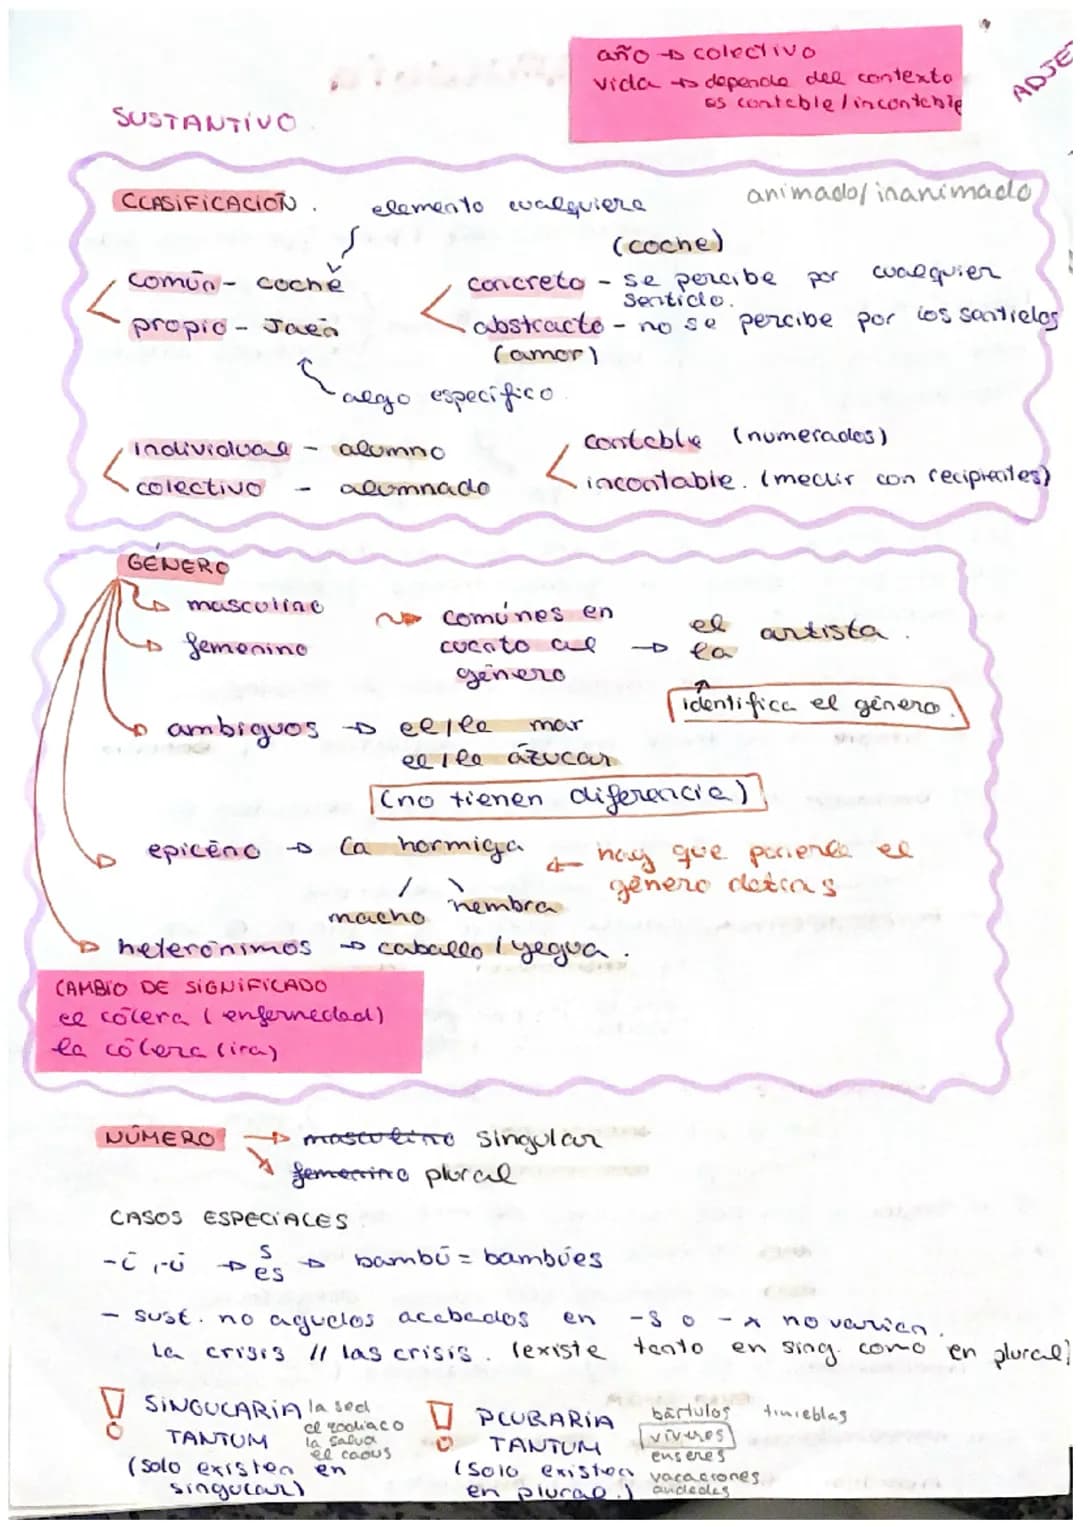 año → colectivo
vida → depende del contexto
es contable/incontable
ADJE
SUSTANTIVO
CLASIFICACIÓN.
elemento cualquiera
animado/inanimado
(coche)
común - coche
concreto - se percibe por cualquier
sentido.
propio - Jaén
abstracto - no se percibe por los sentidos
(amor)
algo específico.
individual - alumno
contable (numerados)
colectivo - alumnado
incontable. (medir con recipientes)
GÉNERO
masculino
comúnes en
cuanto al
género
→ el
la
artista.
femenino
identifica el género.
ambiguos → el/la mar
el/la azúcar
(no tienen diferencia)
epicéno → la hormiga
← hay que ponerle el
género detrás
macho
hembra
heterónimos → caballo/yegua.
CAMBIO DE SIGNIFICADO
el cólera (enfermedad)
la cólera (ira)
NÚMERO → masculino singular
femenino plural
CASOS ESPECIALES
-í, -ú → s
es → bambú = bambúes
- sust. no agudos acabados en -s o -x no varían.
La crisis // las crisis. (existe tanto en sing. como en plural)
! SINGULARIA
TANTUM
(solo existen en
singular)
la sed
el zodiaco
la salud
el caous
! PLURARIA
TANTUM
(solo existen
en plural.)
bártulos
tinieblas
víveres
enseres
vacaciones